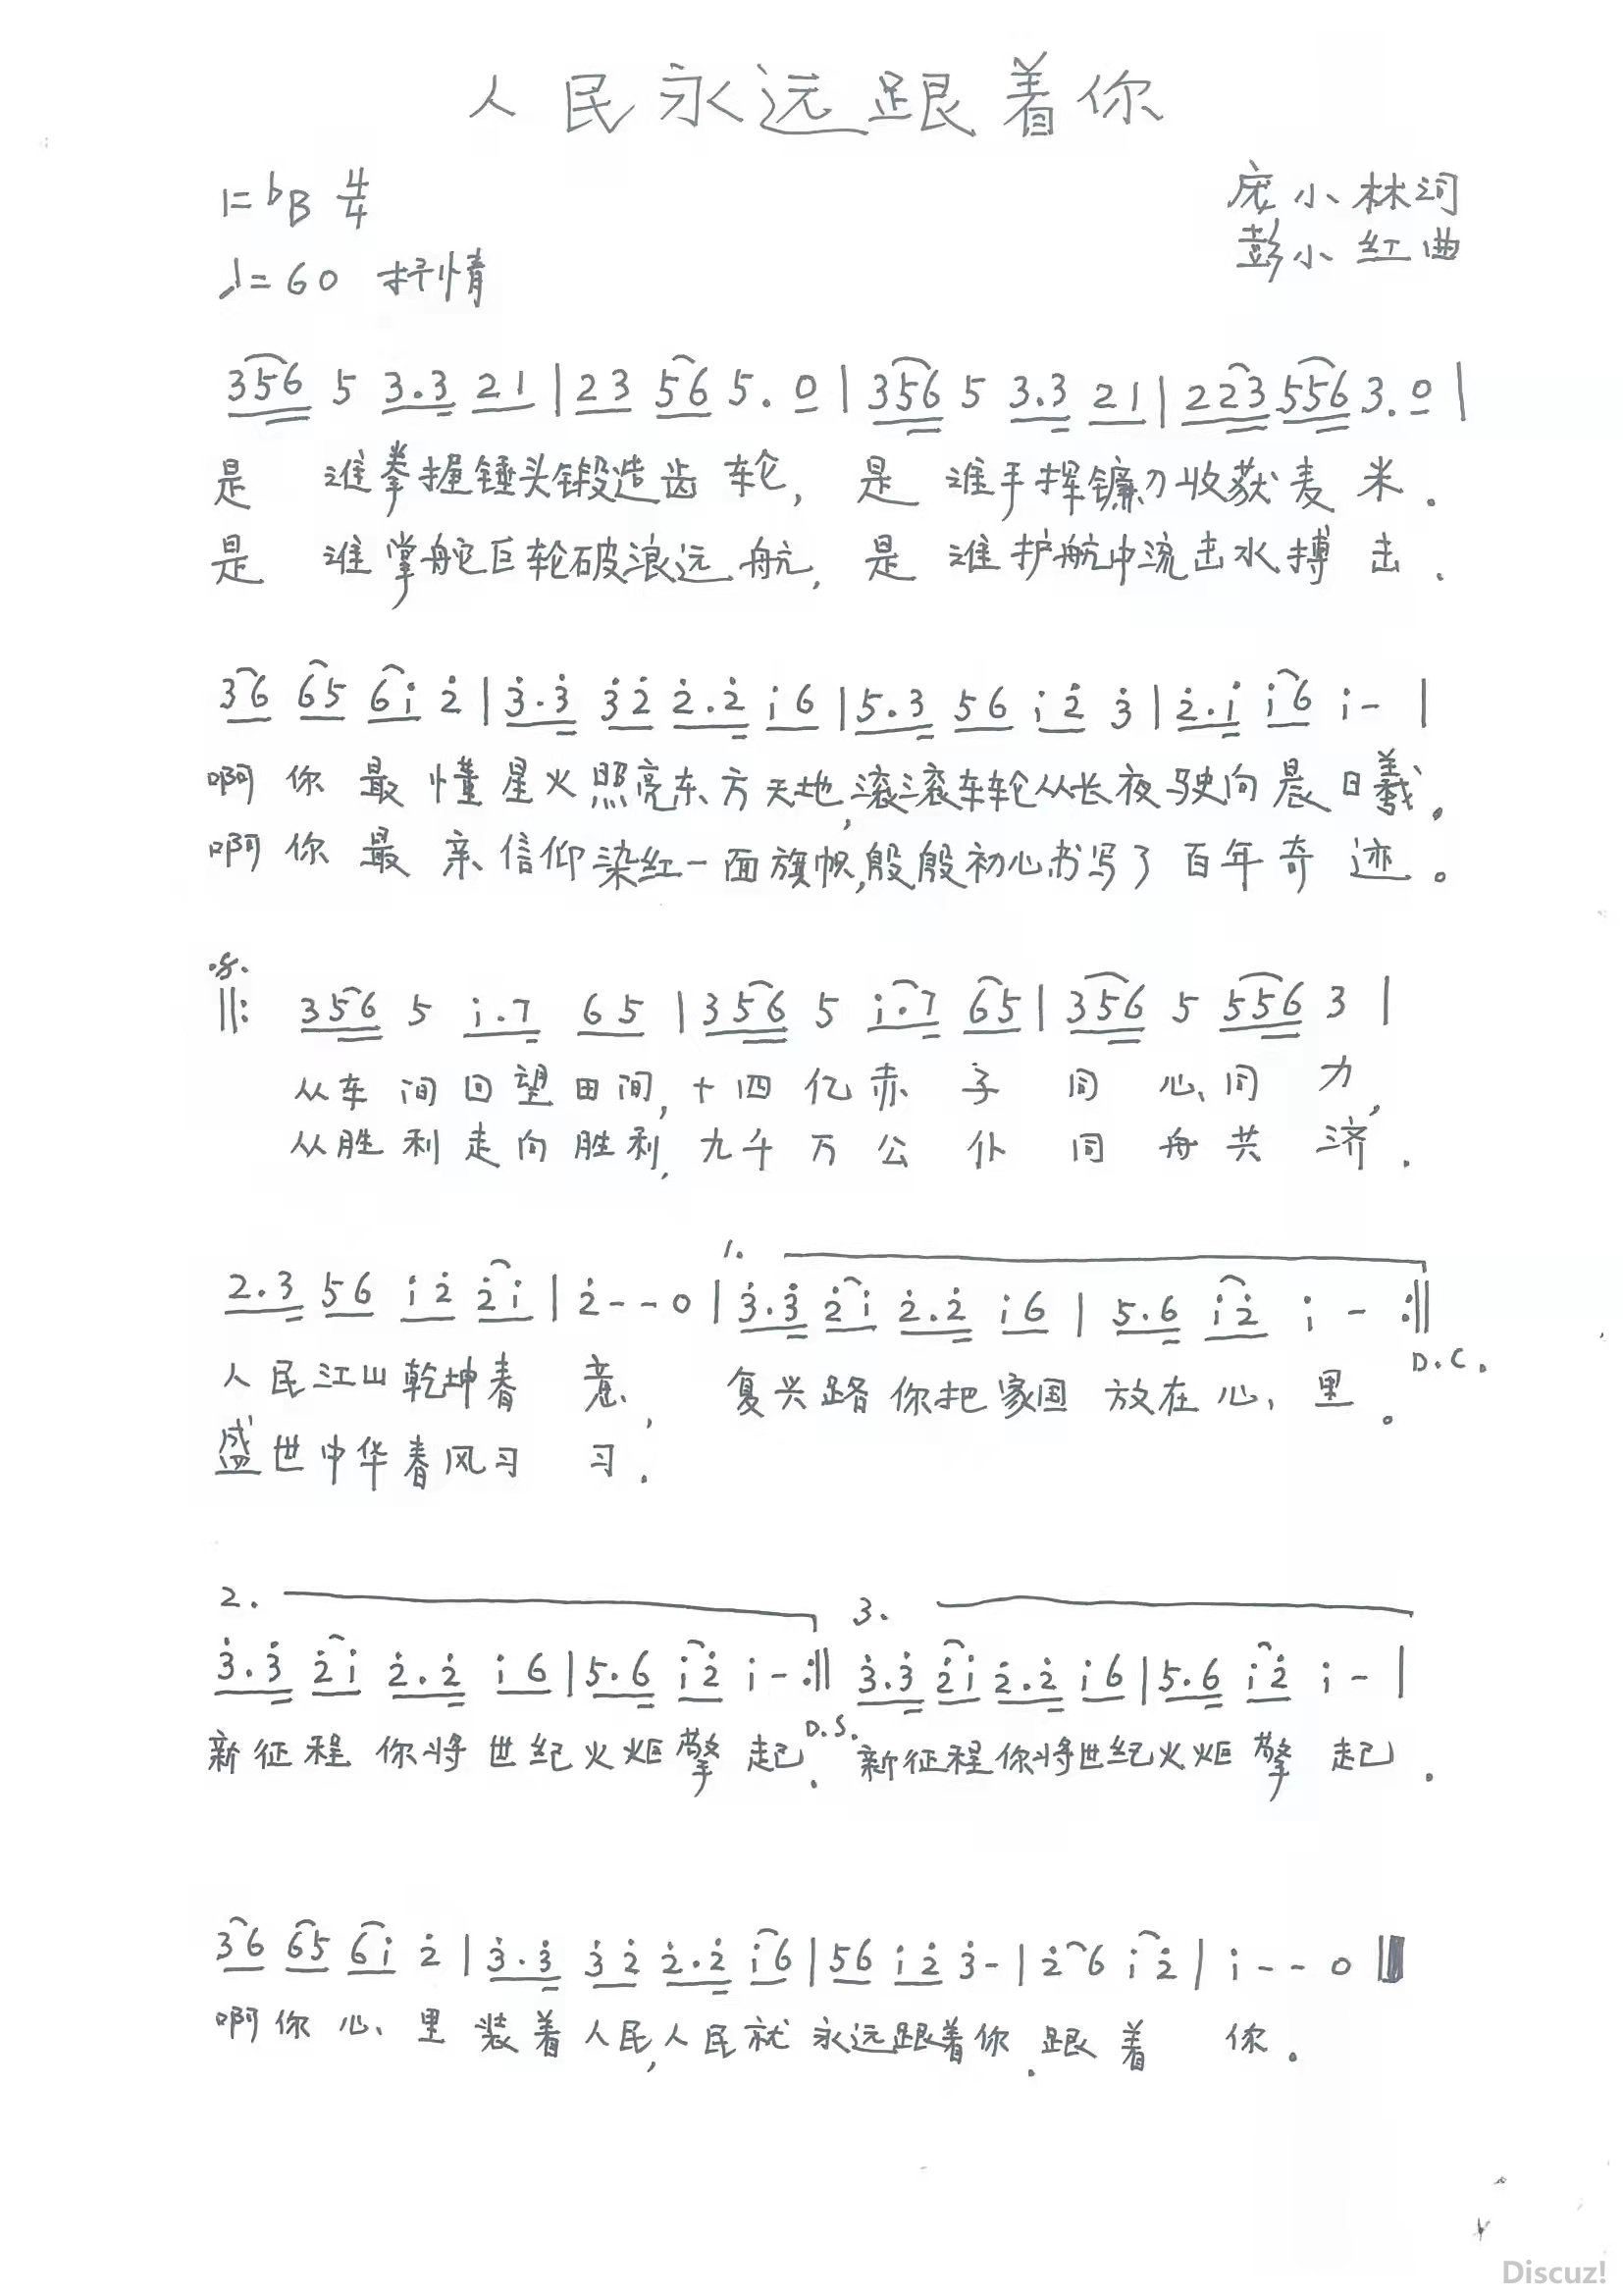 人民永远跟着你
1=bB 4/4
庞小林词
♩=60 抒情
彭小红曲
356 5 3.3 21 | 23 56 5. 0 | 356 5 3.3 21 | 223 556 3. 0 |
是 谁拳握锤头锻造齿轮, 是 谁手挥镰刀收获麦米.
是 谁掌舵巨轮破浪远航, 是 谁护航中流击水搏击.
36 65 6i 2̇ | 3̇.3̇ 3̇2̇ 2̇.2̇ i6 | 5.3 56 i2̇ 3̇ | 2̇.i i6 i- |
啊你最懂星火照亮东方天地,滚滚车轮从长夜驶向晨曦。
啊你最亲信仰染红一面旗帜,殷殷初心书写了百年奇迹。
𝄋
‖: 356 5 i.7 65 | 356 5 i.7 65 | 356 5 556 3 |
从车间回望田间,十四亿赤子同心同力,
从胜利走向胜利,九千万公仆同舟共济.
1.
2.3 56 i2̇ 2̇i | 2̇--0 | 3̇.3̇ 2̇i 2̇.2̇ i6 | 5.6 i2̇ i - :‖
D.C.
人民江山乾坤春意, 复兴路你把家国放在心里。
盛世中华春风习习.
2. 3.
3̇.3̇ 2̇i 2̇.2̇ i6 | 5.6 i2̇ i- :‖ 3̇.3̇ 2̇i 2̇.2̇ i6 | 5.6 i2̇ i- |
D.S.
新征程你将世纪火炬擎起. 新征程你将世纪火炬擎起.
36 65 6i 2̇ | 3̇.3̇ 3̇2̇ 2̇.2̇ i6 | 56 i2̇ 3̇- | 2̇6 i2̇ | i--0 ‖
啊你心里装着人民,人民就永远跟着你.跟着你.
Discuz!